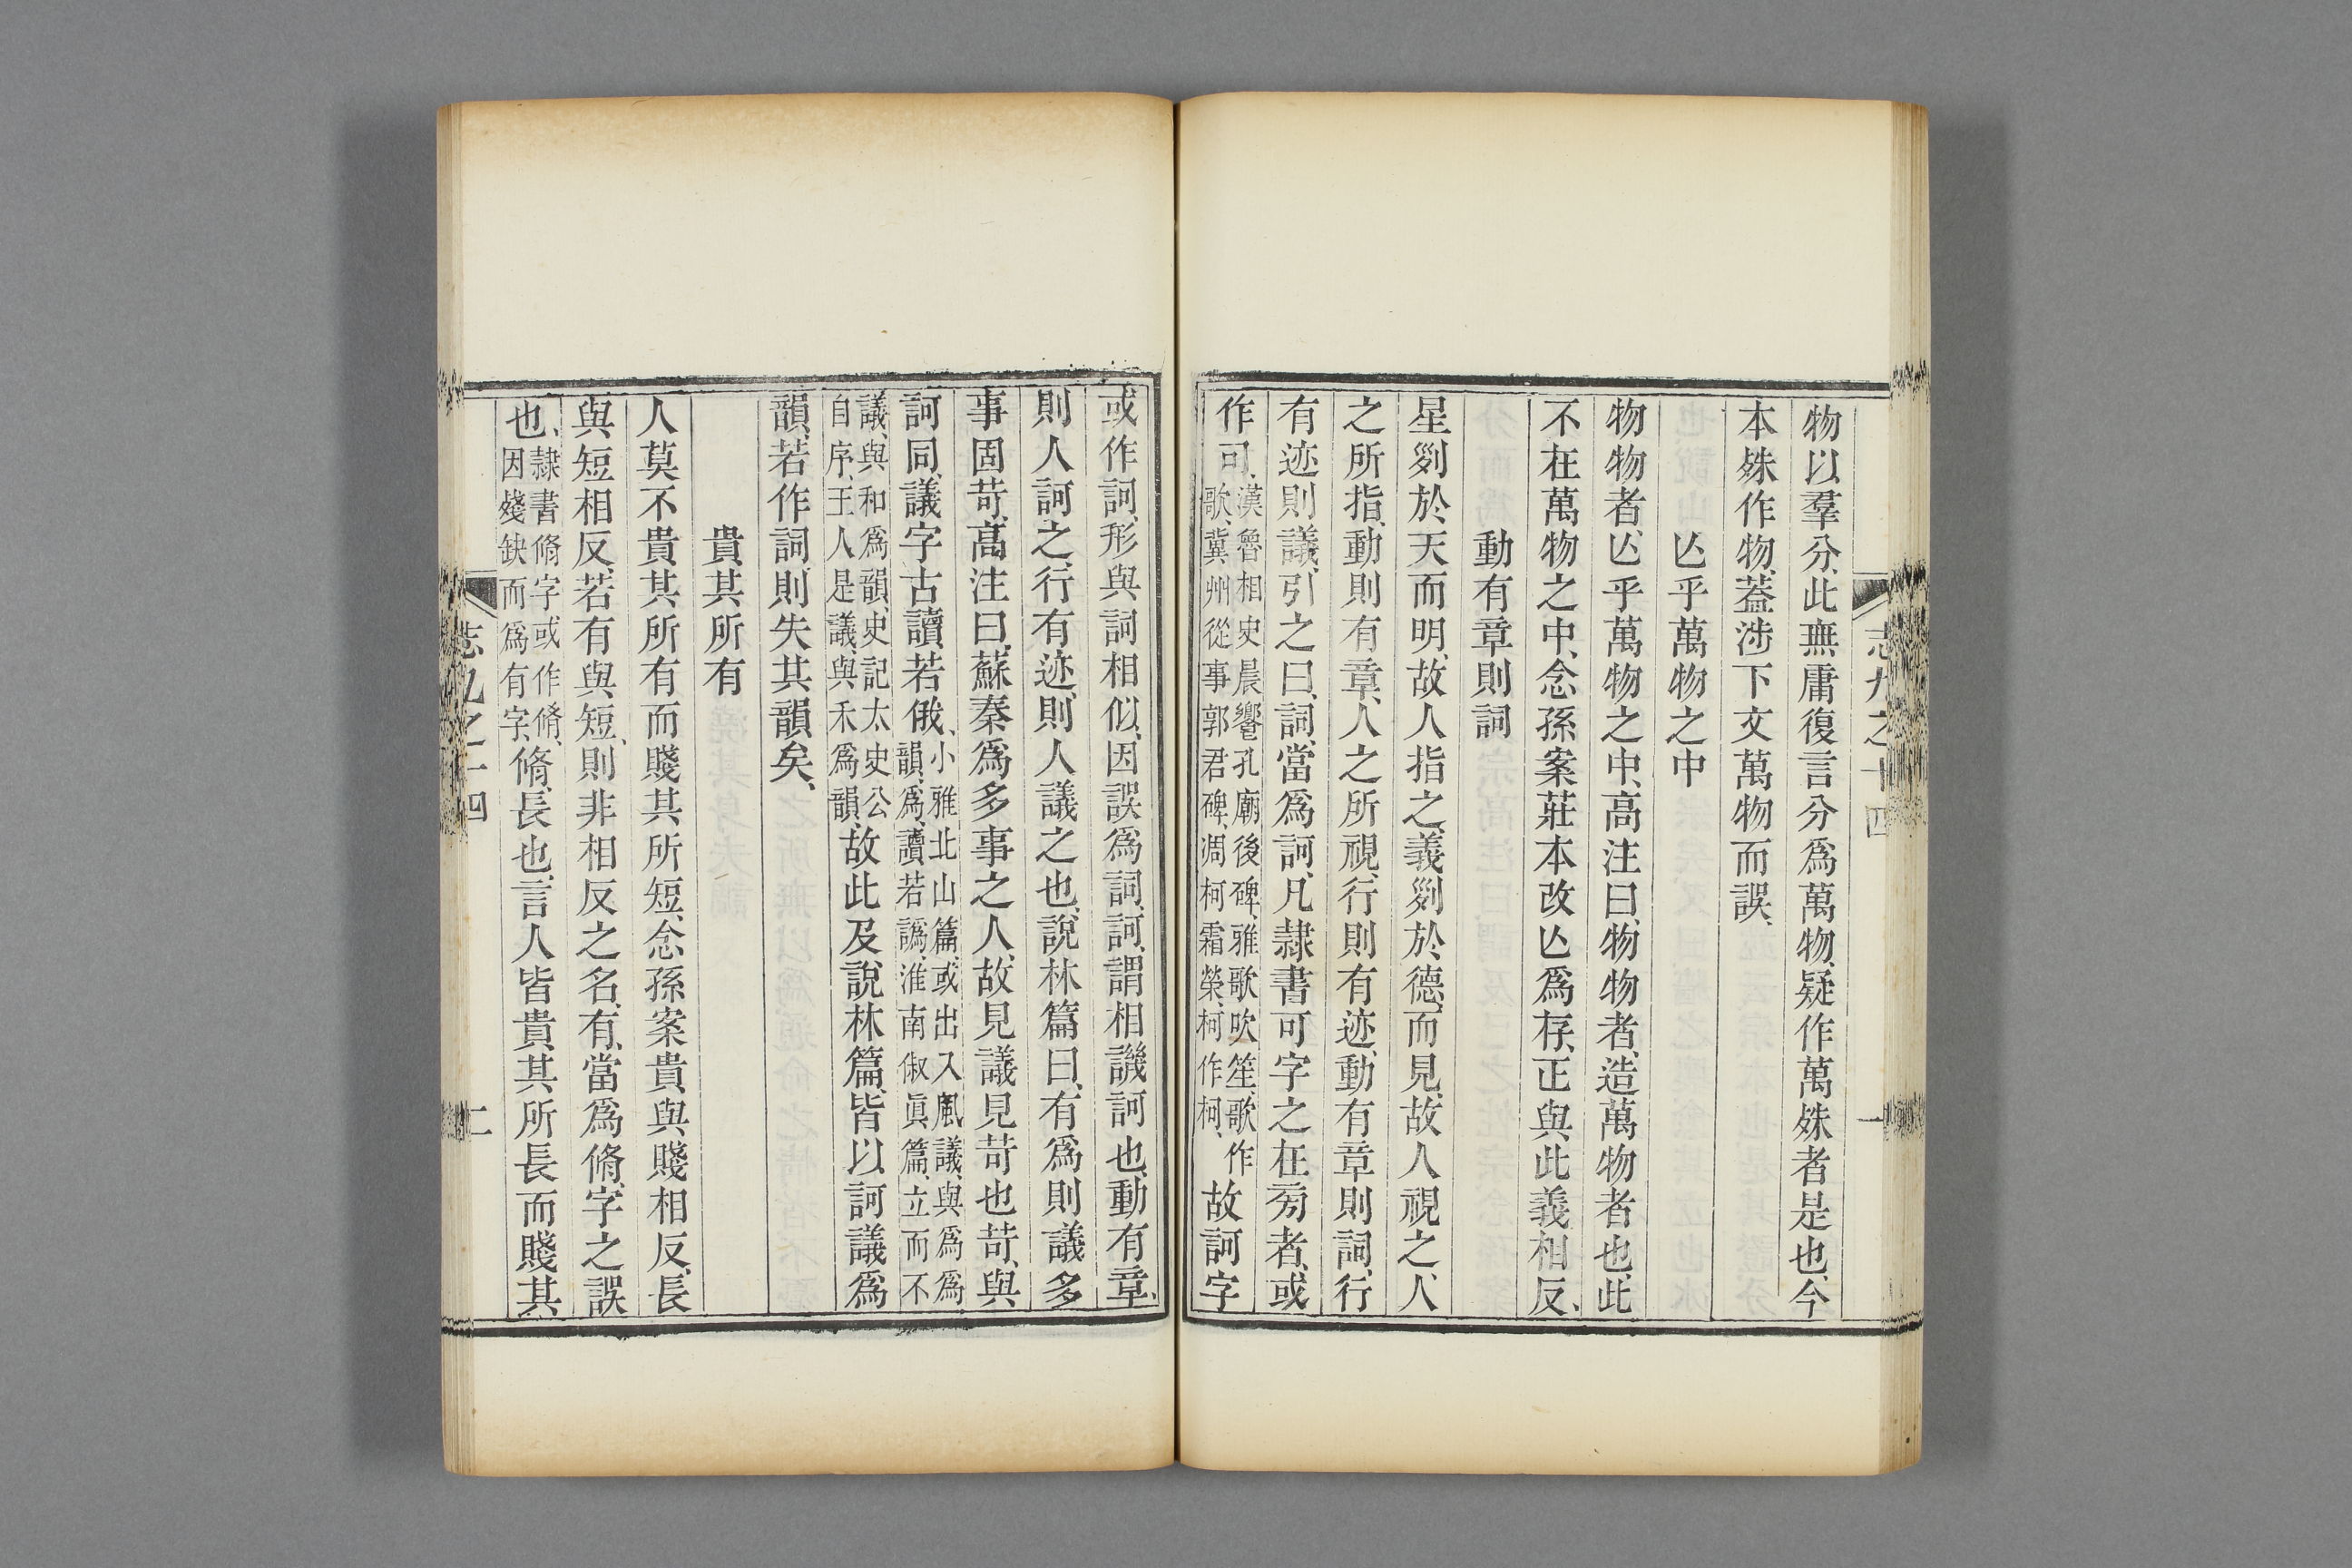 志九之十四 一
物以羣分、此無庸復言分爲萬物、疑作萬殊者是也、今
本殊作物、蓋涉下文萬物而誤、
亾乎萬物之中
物物者、亾乎萬物之中、高注曰、物物者、造萬物者也、此
不在萬物之中、念孫案莊本改亾爲存、正與此義相反、
動有章則詞
星劉於天而明、故人指之、義劉於德、而見、故人視之、人
之所指、動則有章、人之所視、行則有迹、動有章則詞、行
有迹則議、引之曰、詞當爲訶、凡隸書可字之在旁者、或
作司、漢魯相史晨饗孔廟後碑、雅歌吹笙、歌作
歌、冀州從事郭君碑、凋柯霜榮、柯作柯、故訶字
或作訶、形與詞相似、因誤爲詞、訶、謂相譏訶也、動有章、
則人訶之、行有迹、則人議之也、說林篇曰、有爲則議、多
事固苛、高注曰、蘇秦爲多事之人、故見議見苛也、苛、與
訶同、議字古讀若俄、小雅北山篇、或出入風議、與爲爲
韻、爲、讀若譌、淮南俶眞篇、立而不
議、與和爲韻、史記太史公
自序、王人是議、與禾爲韻、故此及說林篇、皆以訶議爲
韻、若作詞、則失其韻矣、
貴其所有
人莫不貴其所有而賤其所短、念孫案貴與賤相反、長
與短相反、若有與短、則非相反之名、有、當爲脩、字之誤
也、隸書脩字或作脩、
因殘缺而爲有字、脩、長也、言人皆貴其所長而賤其
志九之十四 二